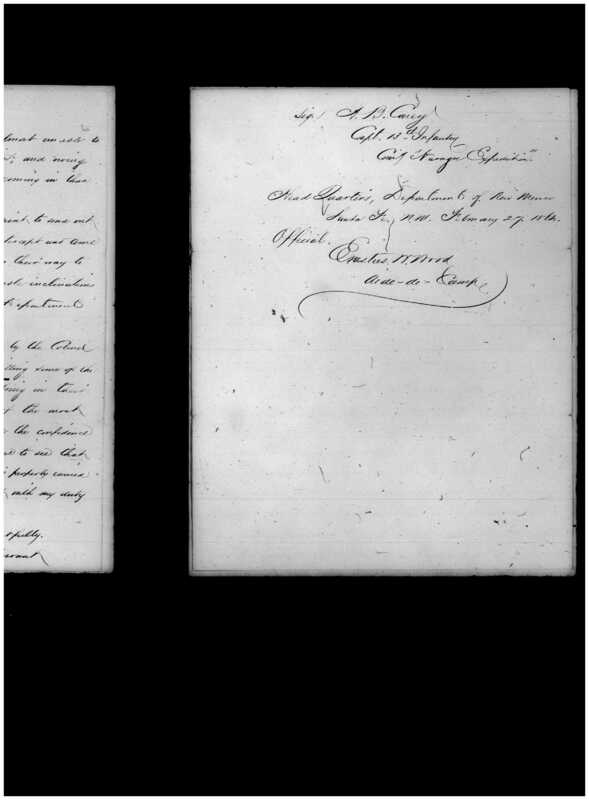 almost unable to
and owing
coming in than
point to and out
except and some
their way to
inclinations
Department
by the Colonel
some of the
in their
of the most
the confidence
to see that
properly carried
with my duty
servant
Sig. A. B. Carey
Capt. 13th Infantry
Com'g Navajo Expedition
Head Quarters, Department of New Mexico
Santa Fe, N.M. February 27, 1864.
Official.
Erastus W. Wood
Aide-de-Camp